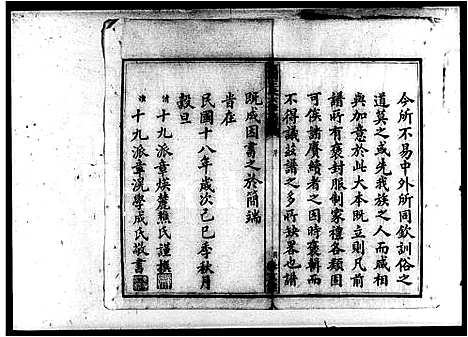 今所不易中外所同欽訓俗之
道莫之或先我族之人而咸相
與加意於此大本既立則凡前
譜所有褒封服制家禮各類固
可俟諸賡續者之因時裒輯而
不得議茲譜之多所缺畧也譜
既成因書之於簡端
旹在
民國十八年歲次己巳季秋月
穀旦
十九派章煐麓氏謹撰
十九派章浣學成氏敬書